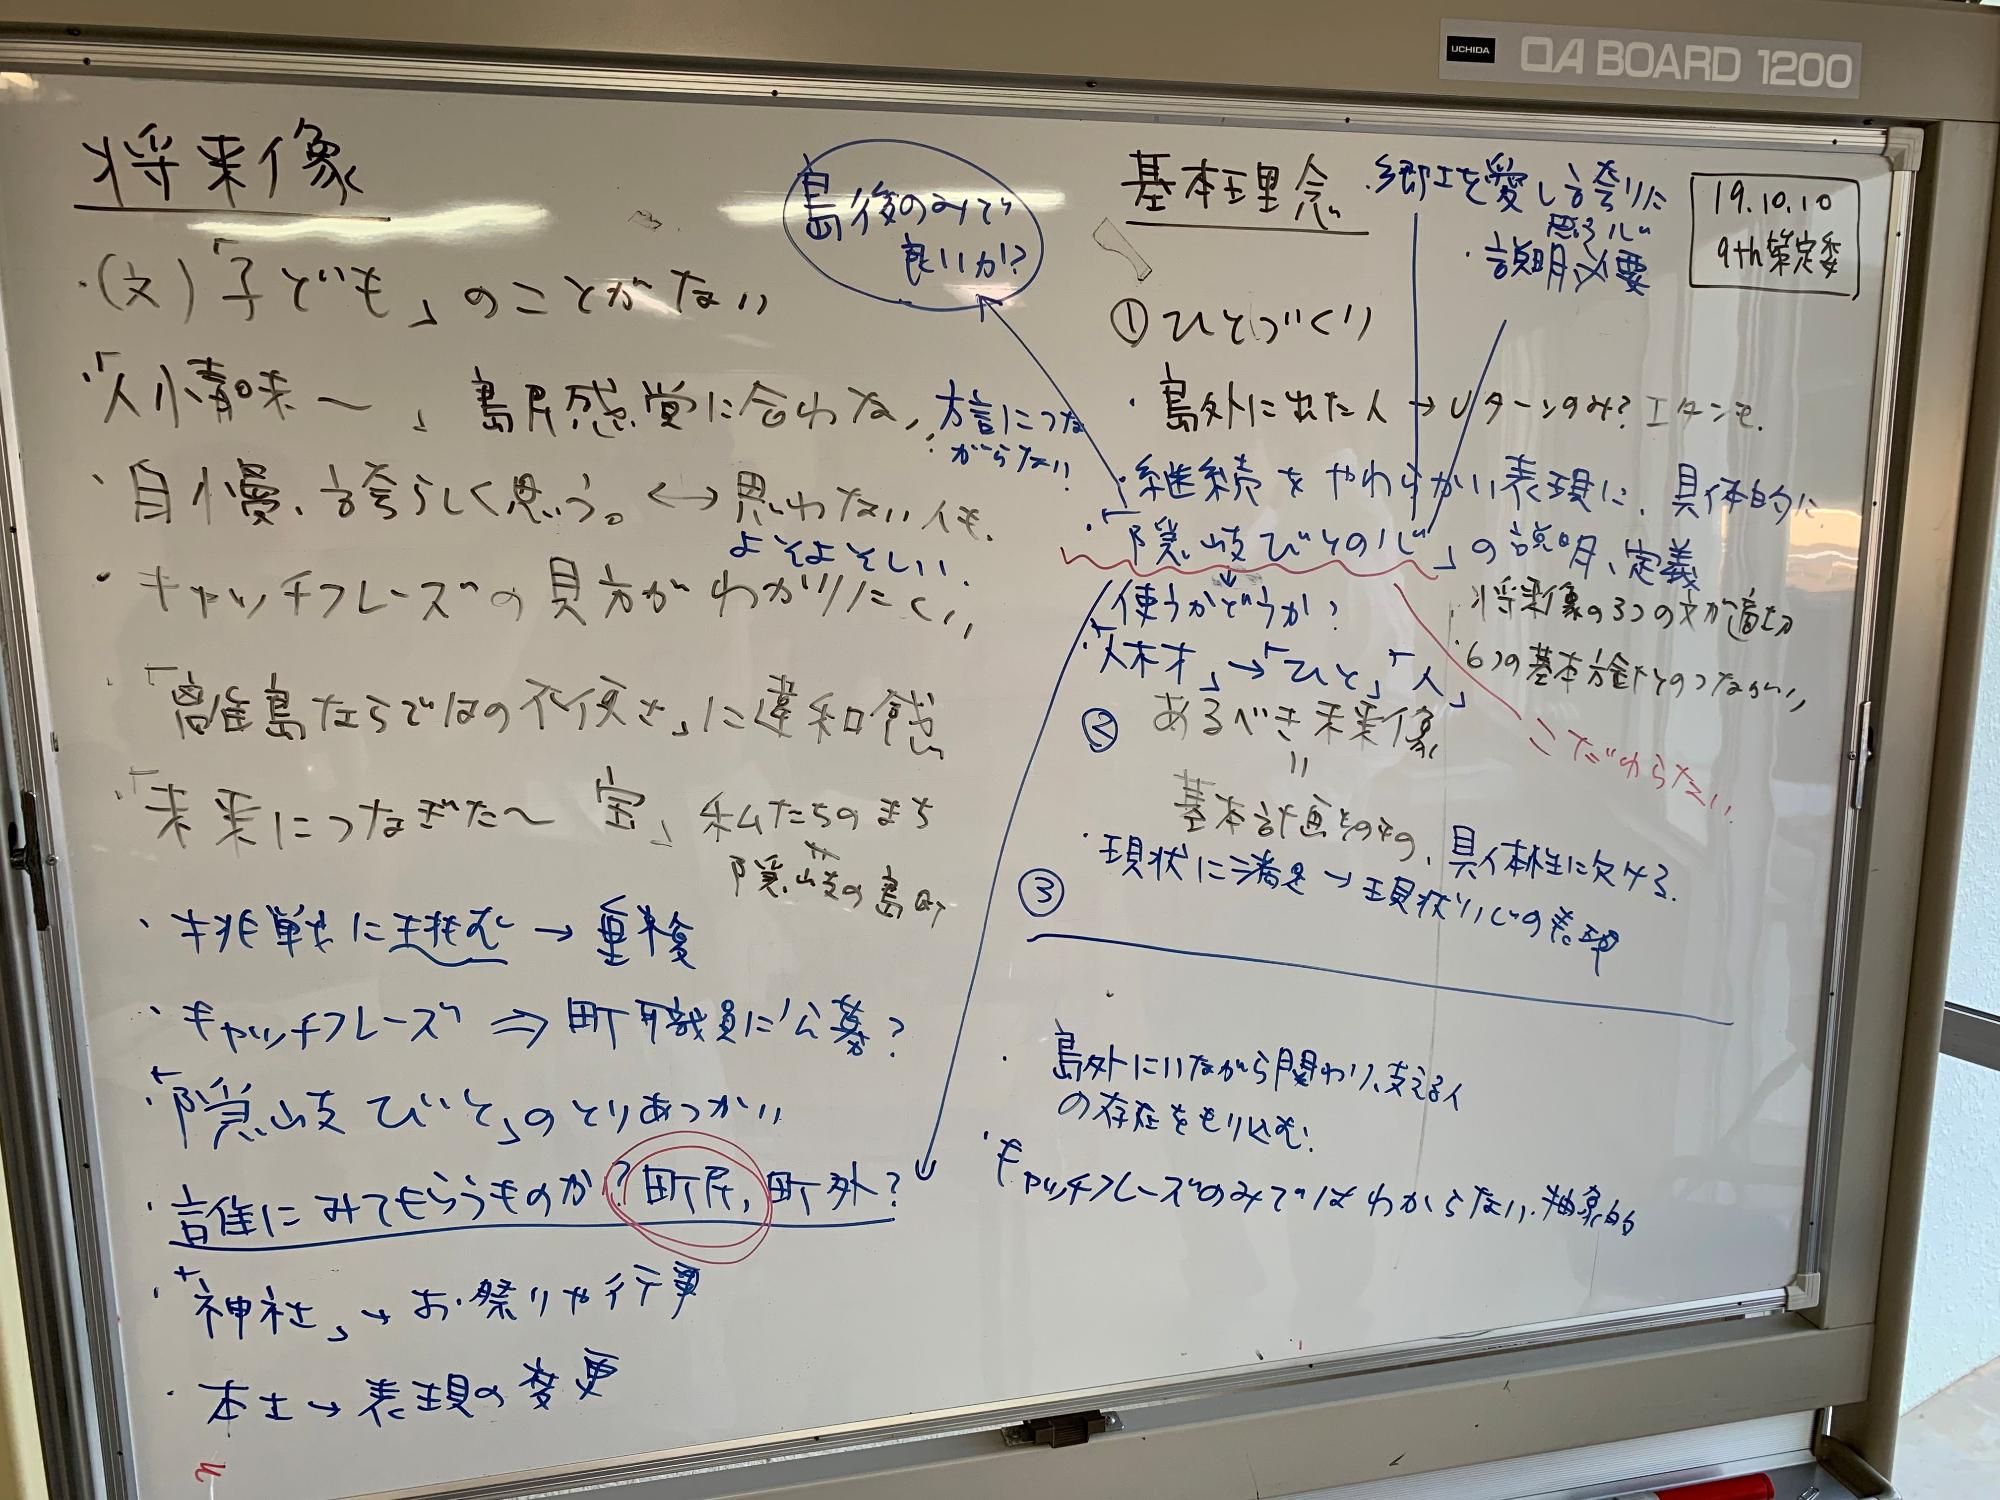 UCHIDA OA BOARD 1200
19.10.10
9th 策定委
将来像
・(文)「子ども」のことがない
・「人情味〜」島民感覚に合わない
・方言につな
がらない
・自慢、誇らしく思う。←→思わない人も、
よそよそしい、
・キャッチフレーズの見方がわかりにくい
・「離島ならではの不便さ」に違和感
・「未来につなぎた〜宝」私たちのまち
隠岐の島町
・挑戦に挑む→重複
・キャッチフレーズ⇒町職員に公募?
・「隠岐びと」のとりあつかい
・誰にみてもらうものか?町民,町外?
・「神社」→お祭りや行事
・本土→表現の変更
島後のみで
良いか?
基本理念
・郷土を愛し誇りに
思う心
・説明必要
①ひとづくり
・島外に出た人→Uターンのみ?Iターンも、
・継続をやわらかい表現に、具体的に
・「隠岐びとの心」の説明、定義
↓
使うかどうか?
・将来像の3つの文が適切
・6つの基本方針とのつながり
・「人材」→「ひと」「人」
こだわらない
② あるべき未来像
=
基本計画そのもの、具体性に欠ける、
・現状に満足→現状の表現
③
・島外にいながら関わり、支える人
の存在をもり込む!
・キャッチフレーズのみではわからない、抽象的